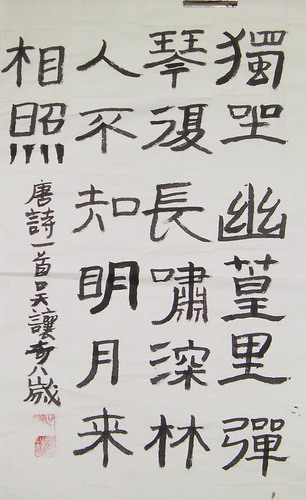 獨坐幽篁里彈
琴復長嘯深林
人不知明月来
相照
唐詩一首吴讓奇八歲